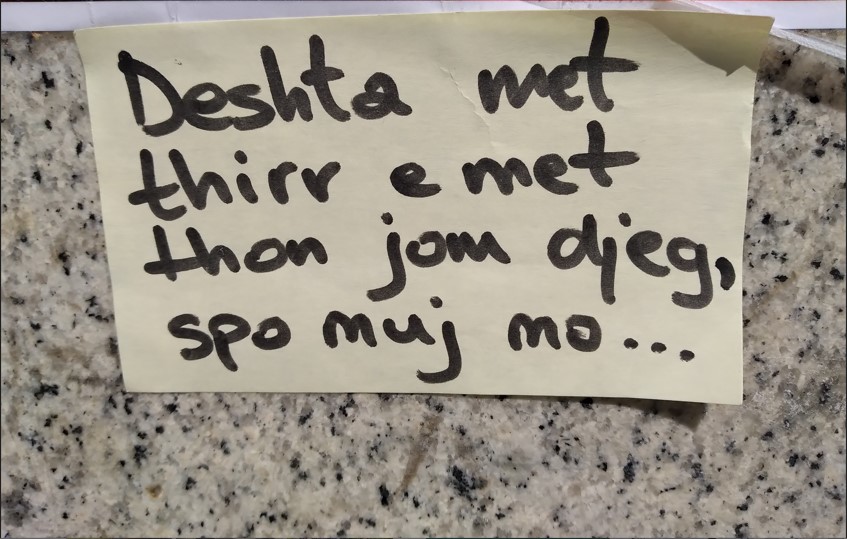 Deshta met
thirr e met
thon jom djeg,
spo muj mo...